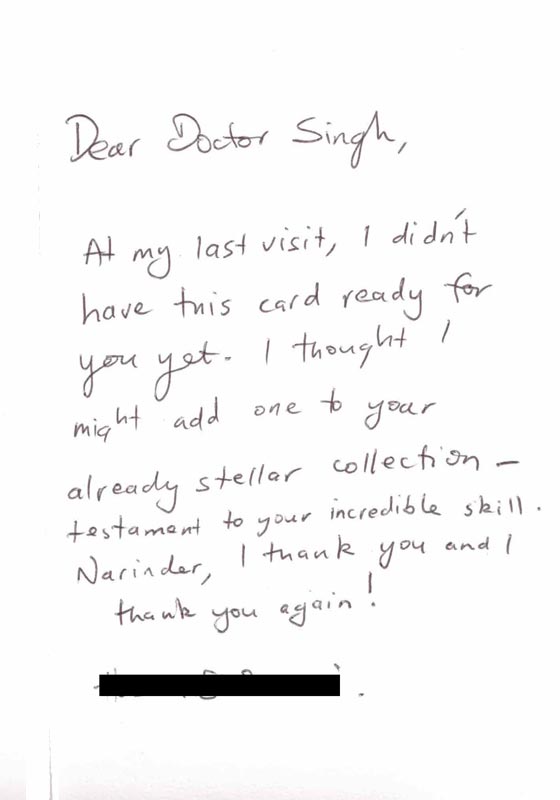 Dear Doctor Singh,
At my last visit, I didn't
have this card ready for
you yet. I thought I
might add one to your
already stellar collection –
testament to your incredible skill.
Narinder, I thank you and I
thank you again!